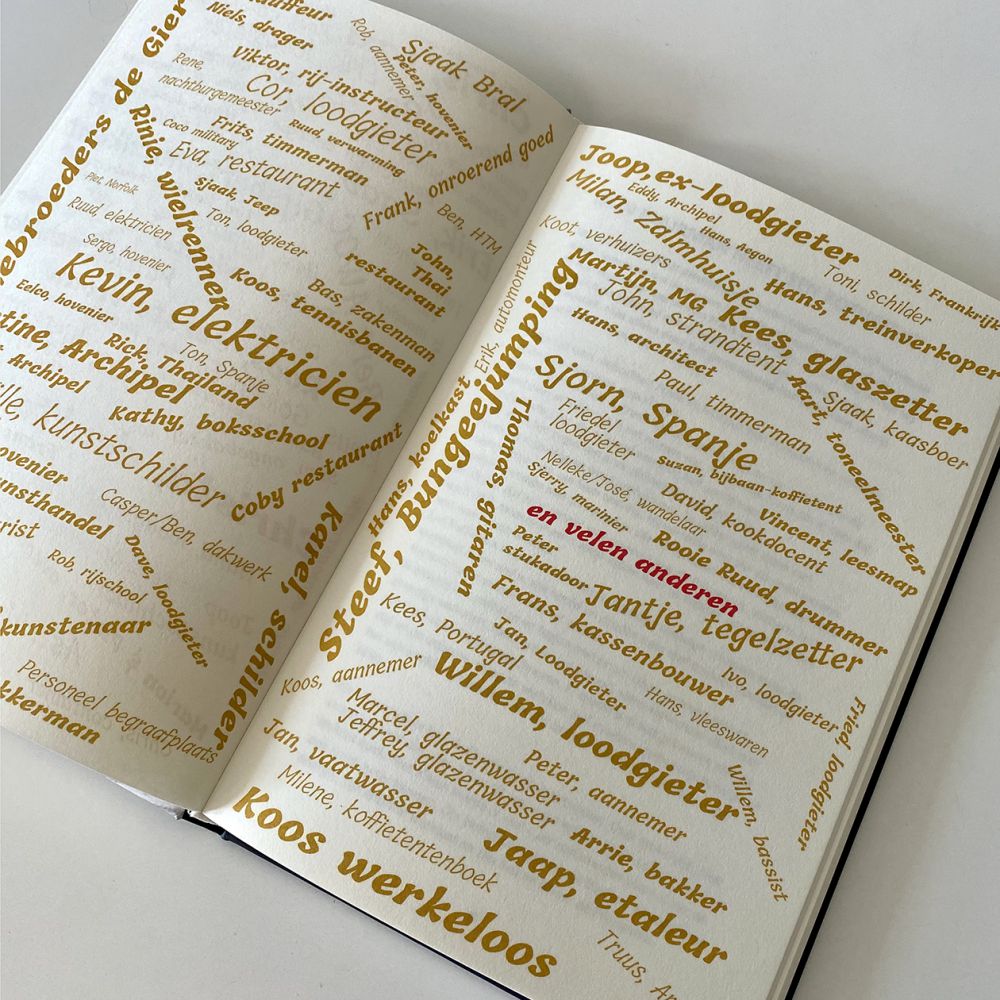 auffeur
Niels, drager
Rob, aannemer
Sjaak Bral
Peter, hovenier
Viktor, rij-instructeur
Rene,
nachtburgemeester
Cor, loodgieter
Ruud, verwarming
Frits, timmerman
Coco military
Eva, restaurant
Gebroeders de Gier
Rinie, wielrennen
Frank, onroerend goed
Piet, Norfolk
Sjaak, Jeep
Ton, loodgieter
Ben, HTM
Ruud, elektricien
Sergo, hovenier
John,
Thai
restaurant
Kevin, elektricien
Koos, tennisbanen
Bas, zakenman
Eelco, hovenier
Rick, Thailand
Ton, Spanje
tine, Archipel
Archipel
Kathy, boksschool
lle, kunstschilder
Coby restaurant
ovenier
unsthandel
Casper/Ben, dakwerk
rist
Dave, loodgieter
Rob, rijschool
Karel, schilder
kunstenaar
Personeel begraafplaats
kkerman
Joop, ex-loodgieter
Eddy, Archipel
Milan, Zalmhuisje
Hans, Aegon
Toni, schilder
Dirk, Frankrijk
Koot, verhuizers
Hans, treinverkoper
Martijn, MG
Kees, glaszetter
John, strandtent
Erik, automonteur
Hans, architect
Aart, toneelmeester
Sjaak, kaasboer
Paul, timmerman
Sjorn, Spanje
Steef, Bungeejumping
Hans, koelkast
Thomas, gitaren
Friedel
loodgieter
Suzan, bijbaan-koffietent
Nelleke/José, wandelaar
David, kookdocent
Vincent, leesmap
Sjerry, marinier
Rooie Ruud, drummer
en velen anderen
Peter
stukadoor
Jantje, tegelzetter
Frans, kassenbouwer
Kees, Portugal
Jan, Loodgieter
Ivo, loodgieter
Hans, vleeswaren
Fried, loodgieter
Koos, aannemer
Willem, loodgieter
Marcel, glazenwasser
Jeffrey, glazenwasser
Peter, aannemer
Willem, bassist
Jan, vaatwasser
Milene, koffietentenboek
Arrie, bakker
Koos werkeloos
Jaap, etaleur
Truus, A